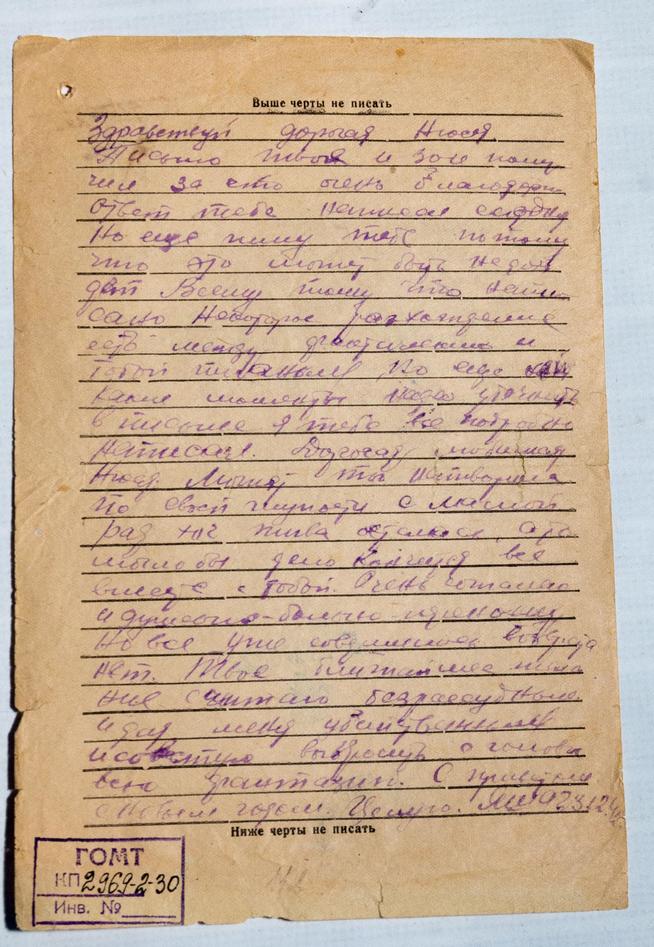 Выше черты не писать
Здравствуй дорогая Нюся
Письмо твое и Зои полу
чил за что очень благодарен
Ответ тебе написал
Но еще пишу тебе потому
что это может быть не дой
дет Всему тому что напи
сано Некоторое расхождение
есть между и
тобой Но еще
Какие моменты надо уточнить
в письме я тебе все подробно
написал. Дорогая любимая
Нюся. Может ты натворила
по своей глупости с
раз жива осталась, а то
было бы дело кончится все
вместе с тобой. Очень
и душевно-больно
Но все уже возврата
нет. Твое ближайшее
ние считаю безрассудным
и для меня убийственным
и советую выбросить с головы
всю фантазию. С приветом
с Новым годом. Целую. 23.12.
Ниже черты не писать
ГОМТ
КП 2969-2-30
Инв. №